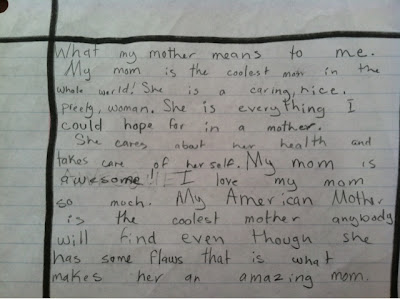 What my mother means to me.
My mom is the coolest mom in the
whole world! She is a caring, nice,
preety, woman. She is everything I
could hope for in a mother.
She cares about her health and
takes care of herself. My mom is
awesome!!! I love my mom
so much. My American Mother
is the coolest mother anybody
will find even though she
has some flaws that is what
makes her an amazing mom.